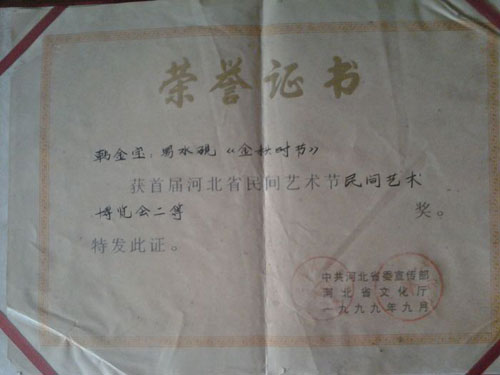 荣誉证书
韩金宝：易水砚《金秋时节》
获首届河北省民间艺术节民间艺术
博览会二等奖。
特发此证。
中共河北省委宣传部
河北省文化厅
一九九九年九月